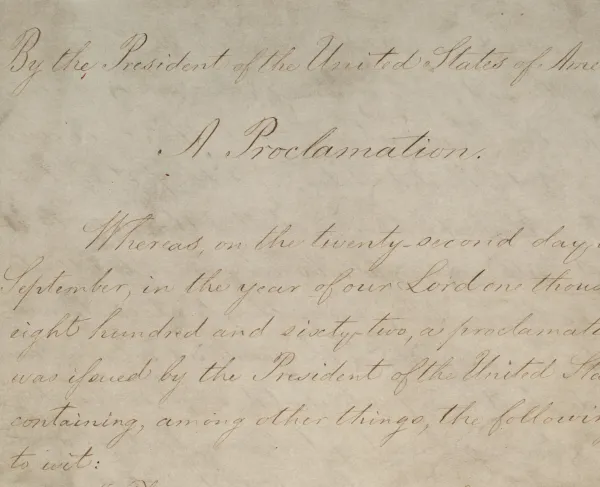 By the President of the United States of Ame
A Proclamation.
Whereas, on the twenty-second day
September, in the year of our Lord one thous
eight hundred and sixty-two, a proclamati
was issued by the President of the United Sta
containing, among other things, the followin
to wit: